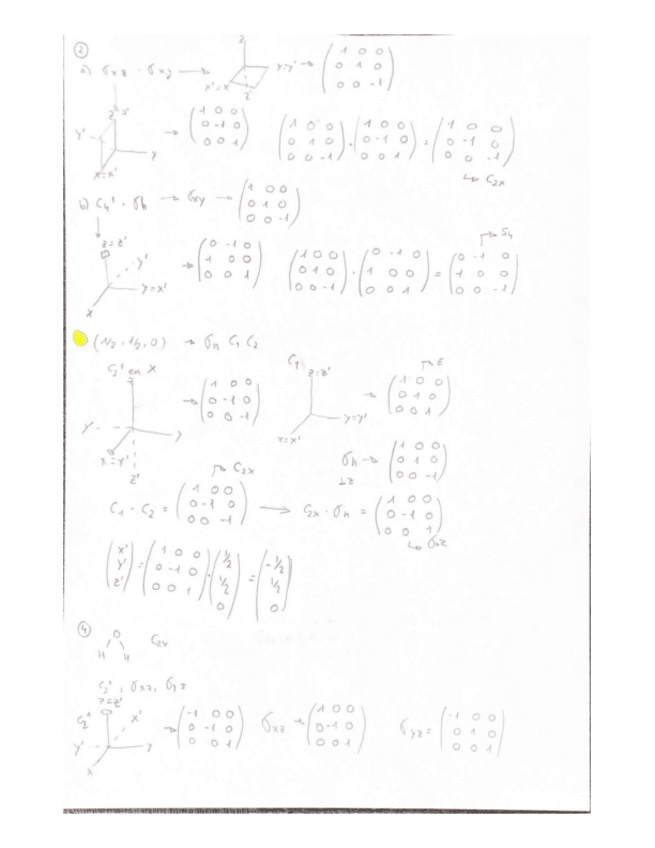 ②
a) σxz · σxy → z y=y' x'=x z' → (1 0 0 / 0 1 0 / 0 0 -1)
z=z' y' y x=x' → (1 0 0 / 0 -1 0 / 0 0 1) (1 0 0 / 0 1 0 / 0 0 -1) · (1 0 0 / 0 -1 0 / 0 0 1) = (1 0 0 / 0 -1 0 / 0 0 -1)
↳ C2x
b) C4¹ · σh → σxy → (1 0 0 / 0 1 0 / 0 0 -1)
z=z' y' y=x' x → (0 -1 0 / 1 0 0 / 0 0 1) (1 0 0 / 0 1 0 / 0 0 -1) · (0 -1 0 / 1 0 0 / 0 0 1) = (0 -1 0 / 1 0 0 / 0 0 -1) S4
(1/2, 1/2, 0) → σh C1 C2
C2¹ en X z y' y z' → (1 0 0 / 0 -1 0 / 0 0 -1) C1 z=z' y=y' x=x' → (1 0 0 / 0 1 0 / 0 0 1) E
σh → (1 0 0 / 0 1 0 / 0 0 -1)
⊥z
C1 · C2 = (1 0 0 / 0 -1 0 / 0 0 -1) C2x → C2x · σh = (1 0 0 / 0 -1 0 / 0 0 1)
↳ σxz
(x' / y' / z') = (1 0 0 / 0 -1 0 / 0 0 1) · (1/2 / 1/2 / 0) = (-1/2 / 1/2 / 0)
④
O H H C2v
C2¹, σxz, σyz
C2¹ z=z' x' y' y x → (-1 0 0 / 0 -1 0 / 0 0 1) σxz → (1 0 0 / 0 -1 0 / 0 0 1) σyz = (-1 0 0 / 0 1 0 / 0 0 1)